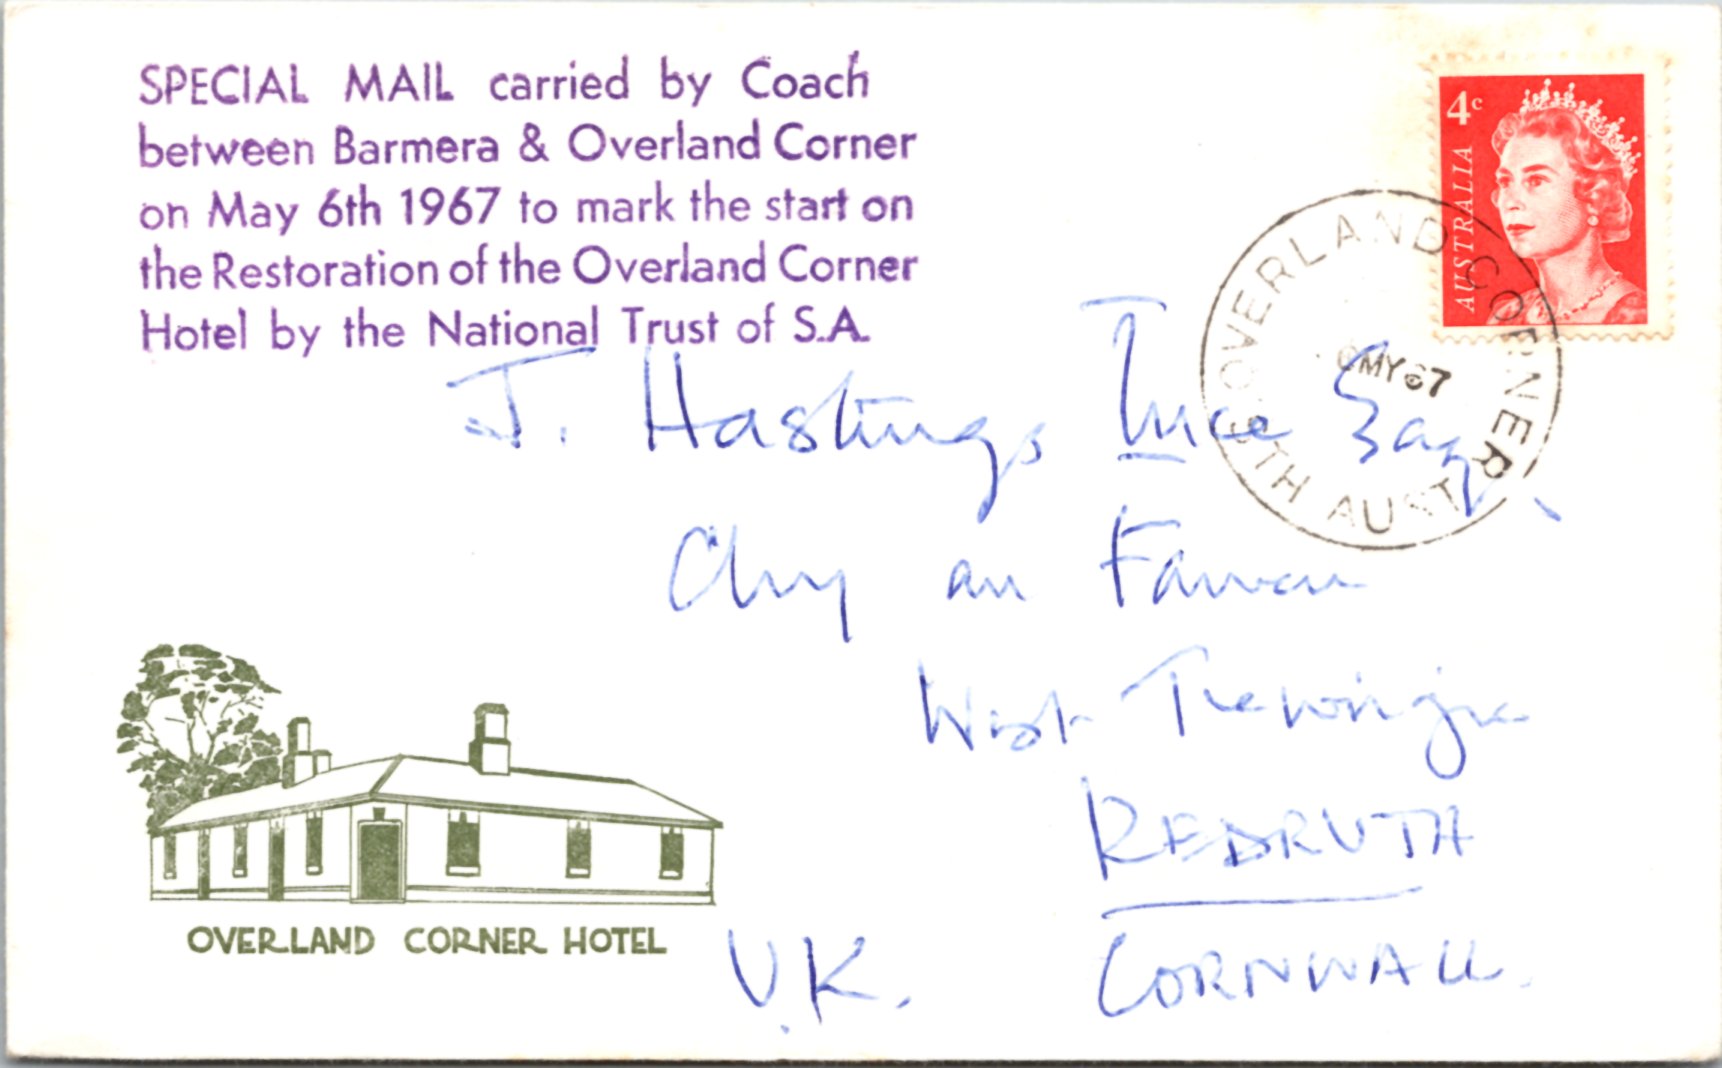 SPECIAL MAIL carried by Coach
between Barmera & Overland Corner
on May 6th 1967 to mark the start on
the Restoration of the Overland Corner
Hotel by the National Trust of S.A.
4c
AUSTRALIA
OVERLAND CORNER
6MY67
STH AUST
J. Hastings Esq.
Chy an
West
REDRUTH
U.K. CORNWALL.
OVERLAND CORNER HOTEL